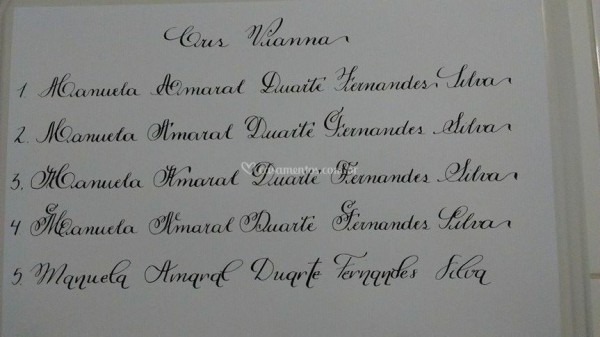 Cris Vianna
1 Manuela Amaral Duarte Fernandes Silva
2. Manuela Amaral Duarte Fernandes Silva
3. Manuela Amaral Duarte Fernandes Silva
4 Manuela Amaral Duarte Fernandes Silva
5. Manuela Amaral Duarte Fernandes Silva